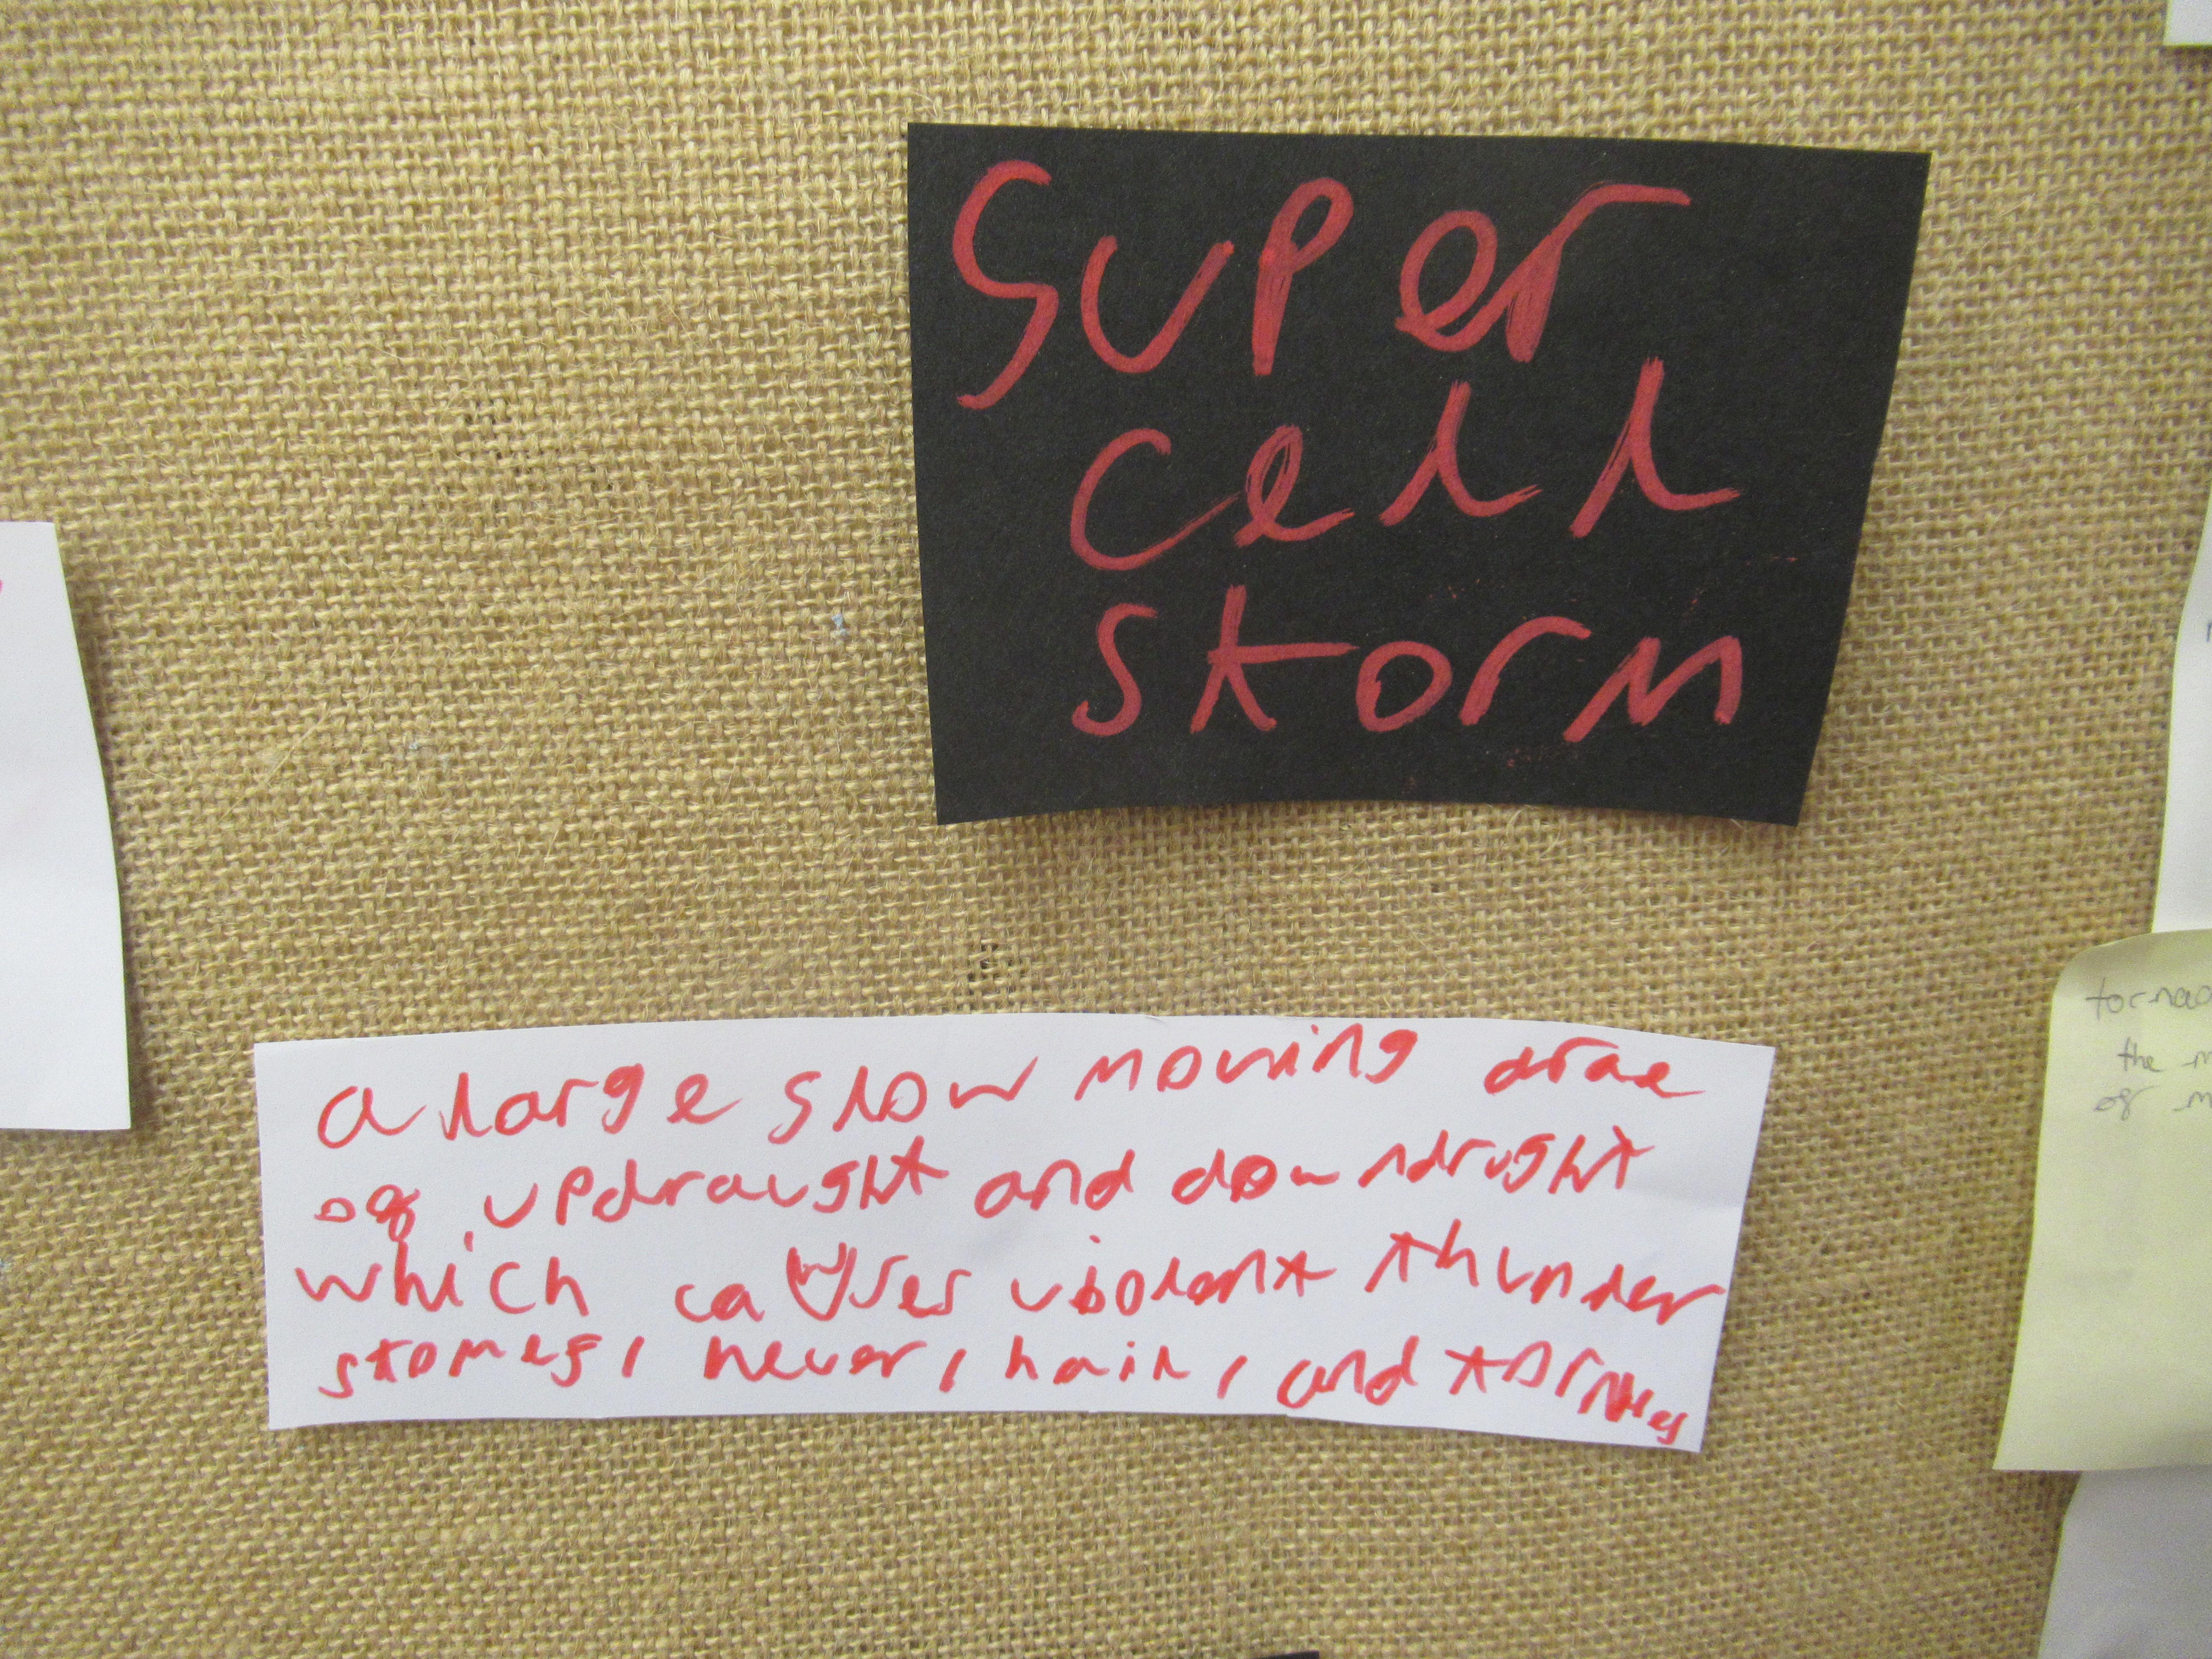 Super
cell
storm
a large slow moving arae
of updraught and downdrught
which causes violent thunder
stomes, hever, hail, and
tornad
the
of